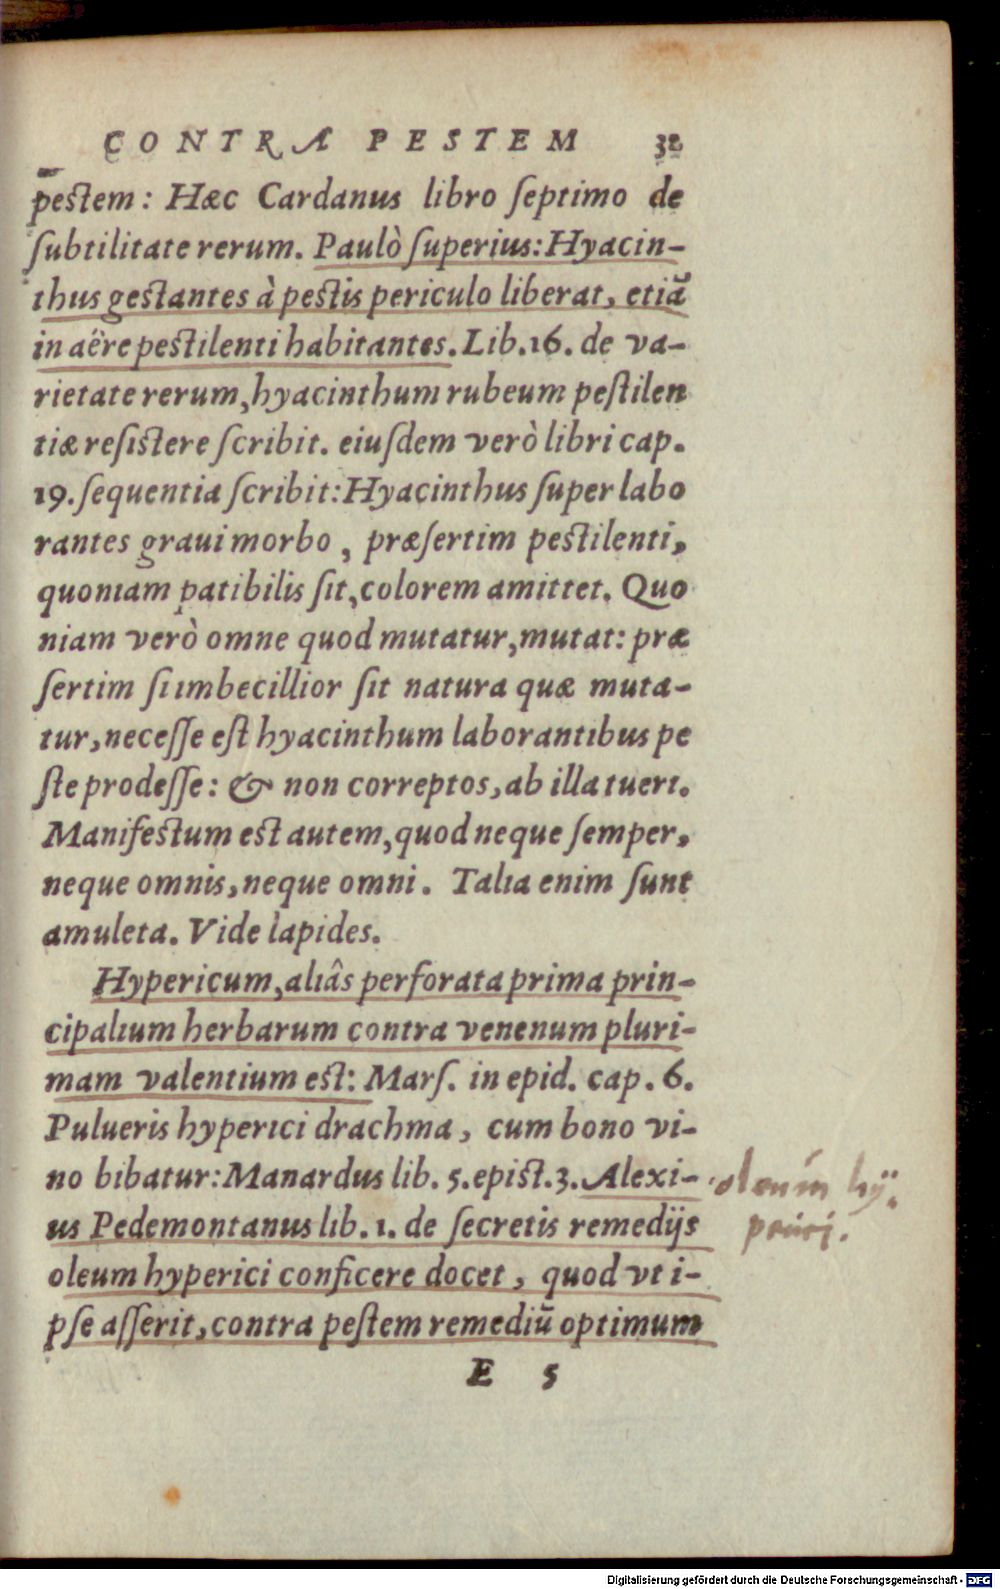 CONTRA PESTEM 38
pestem: Hæc Cardanus libro ſeptimo de
ſubtilitate rerum. Paulò ſuperius: Hyacin-
thus gestantes à pestis periculo liberat, etiā
in aëre pestilenti habitantes. Lib. 16. de va-
rietate rerum, hyacinthum rubeum peſtilen
tiæ reſistere ſcribit. eiuſdem verò libri cap.
19. ſequentia ſcribit: Hyacinthus ſuper labo
rantes graui morbo, præſertim pestilenti,
quoniam patibilis ſit, colorem amittet. Quo
niam verò omne quod mutatur, mutat: præ
ſertim ſi imbecillior ſit natura quæ muta-
tur, neceſſe eſt hyacinthum laborantibus pe
ſte prodeſſe: & non correptos, ab illa tueri.
Manifestum est autem, quod neque ſemper,
neque omnis, neque omni. Talia enim ſunt
amuleta. Vide lapides.
Hypericum, aliâs perforata prima prin-
cipalium herbarum contra venenum pluri-
mam valentium est: Marſ. in epid. cap. 6.
Pulueris hyperici drachma, cum bono vi-
no bibatur: Manardus lib. 5. epist. 3. Alexi-
us Pedemontanus lib. 1. de ſecretis remedijs
oleum hyperici conficere docet, quod vt i-
pſe aſſerit, contra peſtem remediū optimum
oleum hÿ-
perici.
E 5
Digitalisierung gefördert durch die Deutsche Forschungsgemeinschaft - DFG